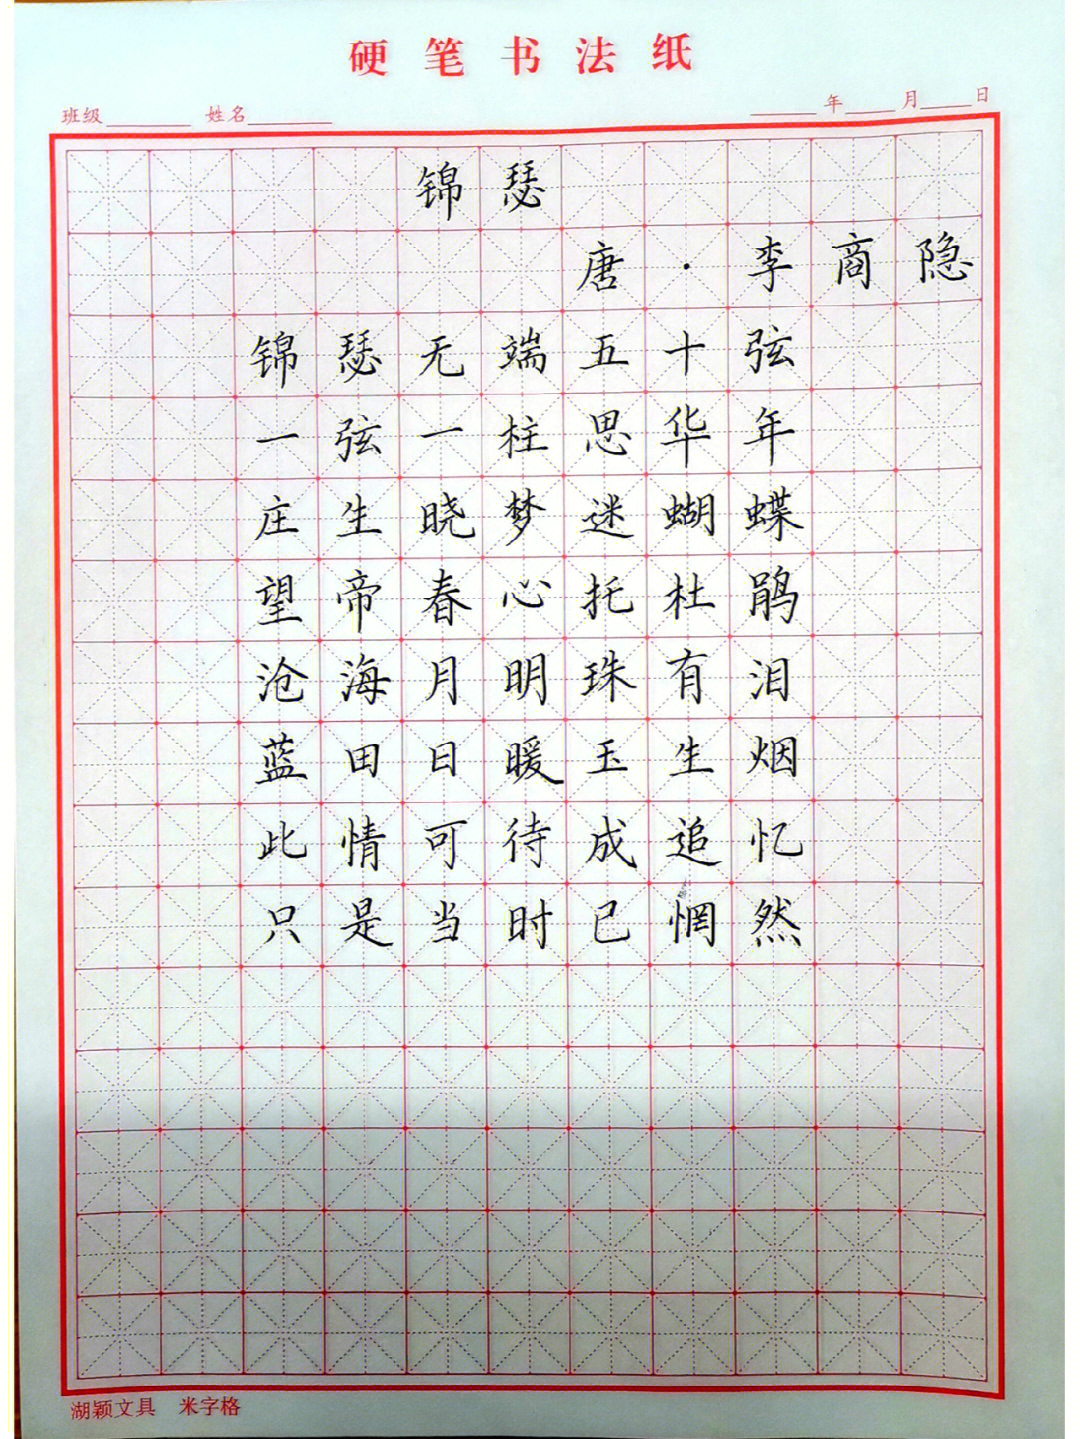 硬笔书法纸
班级 姓名 年 月 日
锦瑟
唐·李商隐
锦瑟无端五十弦
一弦一柱思华年
庄生晓梦迷蝴蝶
望帝春心托杜鹃
沧海月明珠有泪
蓝田日暖玉生烟
此情可待成追忆
只是当时已惘然
湖颖文具 米字格